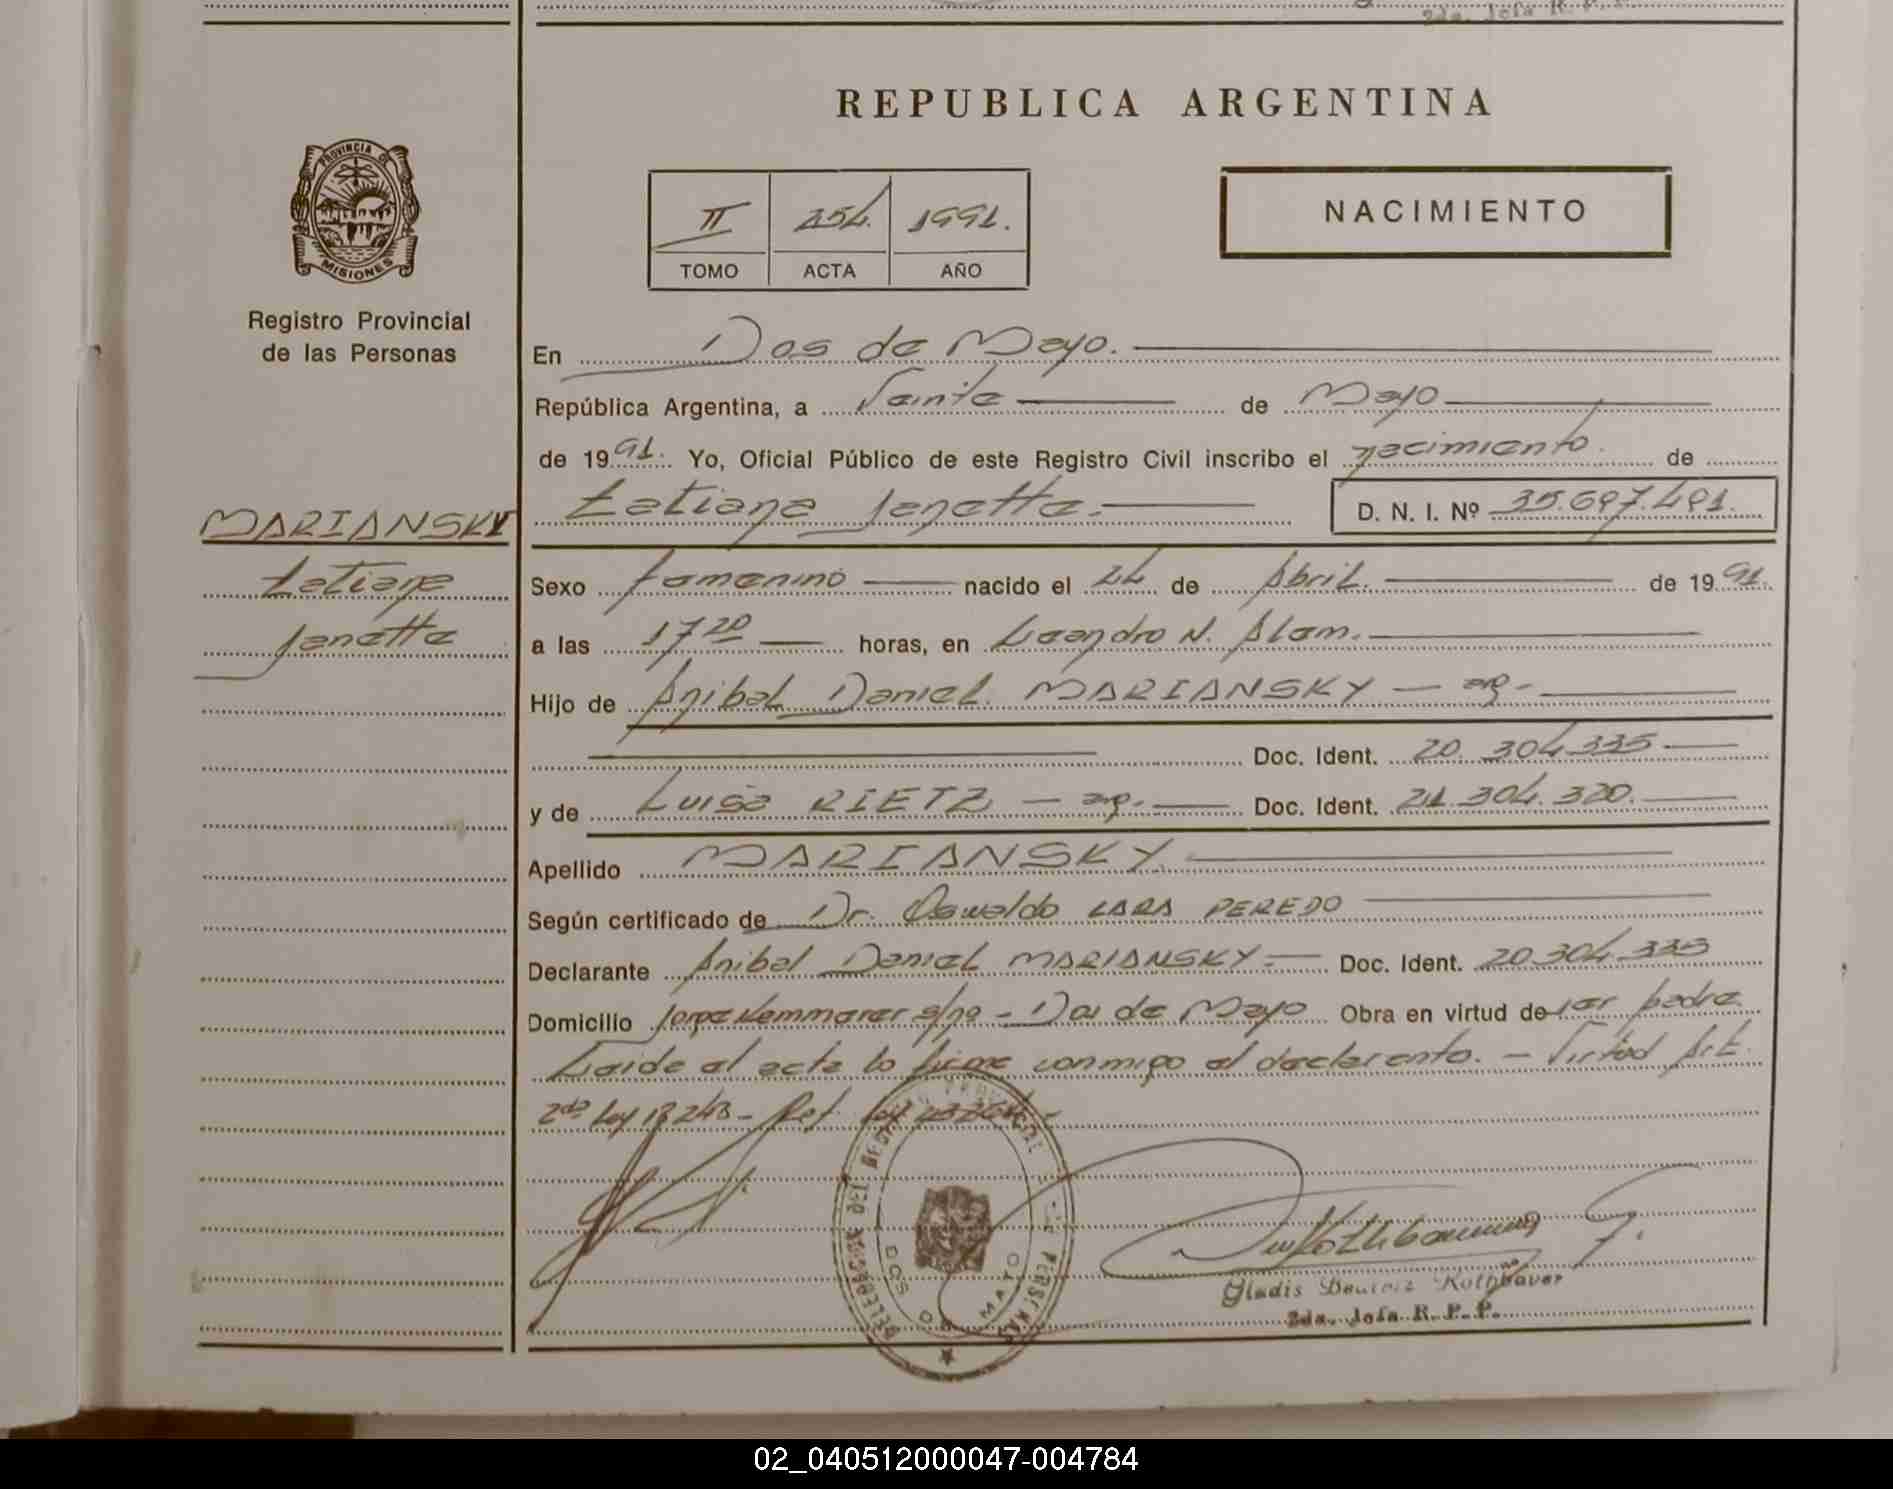 2da. Jefa R. P. P.
REPUBLICA ARGENTINA
PROVINCIA DE
MISIONES
Registro Provincial
de las Personas
II 254. 1991.
TOMO ACTA AÑO
NACIMIENTO
En Dos de Mayo.
República Argentina, a Veinte de Mayo
de 1991. Yo, Oficial Público de este Registro Civil inscribo el nacimiento. de
MARIANSKY
Tatiana
Janette
Tatiana Janette. D. N. I. Nº 35.697.491.
Sexo femenino nacido el 24 de Abril. de 1991.
a las 17 20 horas, en Leandro N. Alem.
Hijo de Anibal Daniel. MARIANSKY — arg.
Doc. Ident. 20.304.335
y de Luisa RIETZ — arg. Doc. Ident. 21.304.320.
Apellido MARIANSKY.
Según certificado de Dr. Oswaldo LARA PEREDO
Declarante Anibal Daniel MARIANSKY. Doc. Ident. 20.304.335
Domicilio Jorge Kemmerer s/nº - Dos de Mayo Obra en virtud de ser padre.
Leída el acta la firma conmigo el declarante. - Virtud Art.
2do Ley 18.248 - Ref. Ley
DELEGACION DEL REGISTRO PROVINCIAL DE PERSONAS
DOS DE MAYO
Gladis Beatriz Rothbauer
2da. Jefa R. P. P.
02_040512000047-004784